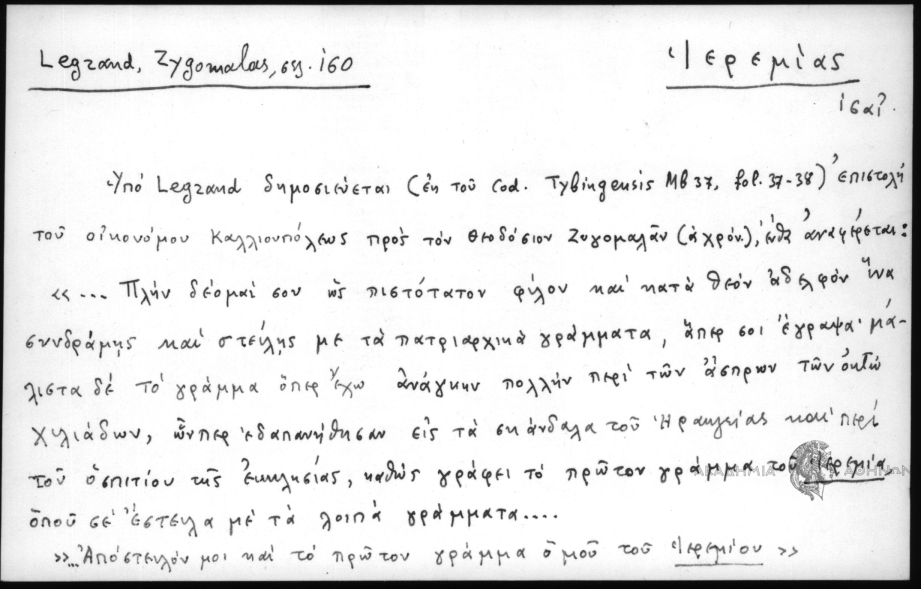 Legrand, Zygomalas, σελ. 160
Ἱερεμίας
ἱσα?
Ὑπό Legrand δημοσιεύεται (ἐκ τοῦ Cod. Tybingensis Mb 37, fol. 37-38) ἐπιστολή
τοῦ οἰκονόμου Καλλιουπόλεως πρὸς τὸν Θεοδόσιον Ζυγομαλᾶν (ἀχρόν.), ἔνθα ἀναφέρεται:
«... Πλήν δέομαί σου ὡς πιστότατον φίλον καί κατὰ θεόν ἀδελφόν ἵνα
συνδράμῃς καί στείλῃς με τὰ πατριαρχικὰ γράμματα, ἅπερ σοι ἔγραψα· μά-
λιστα δέ τό γράμμα ὅπερ ἔχω ἀνάγκην πολλήν περί τῶν ἄσπρων τῶν ὀκτώ
χιλιάδων, ὧνπερ ἐδαπανήθησαν εἰς τὰ σκάνδαλα τοῦ Ἡρακλείας καί περί
τοῦ ὁσπιτίου τῆς ἐκκλησίας, καθώς γράφει τό πρῶτον γράμμα τοῦ Ἱερεμία
ὁποῦ σέ ἔστειλα μέ τά λοιπά γράμματα....
»...Ἀπόστειλόν μοι καί τό πρῶτον γράμμα ὁμοῦ τοῦ Ἱερεμίου »
ΑΚΑΔΗΜΙΑ ΑΘΗΝΩΝ